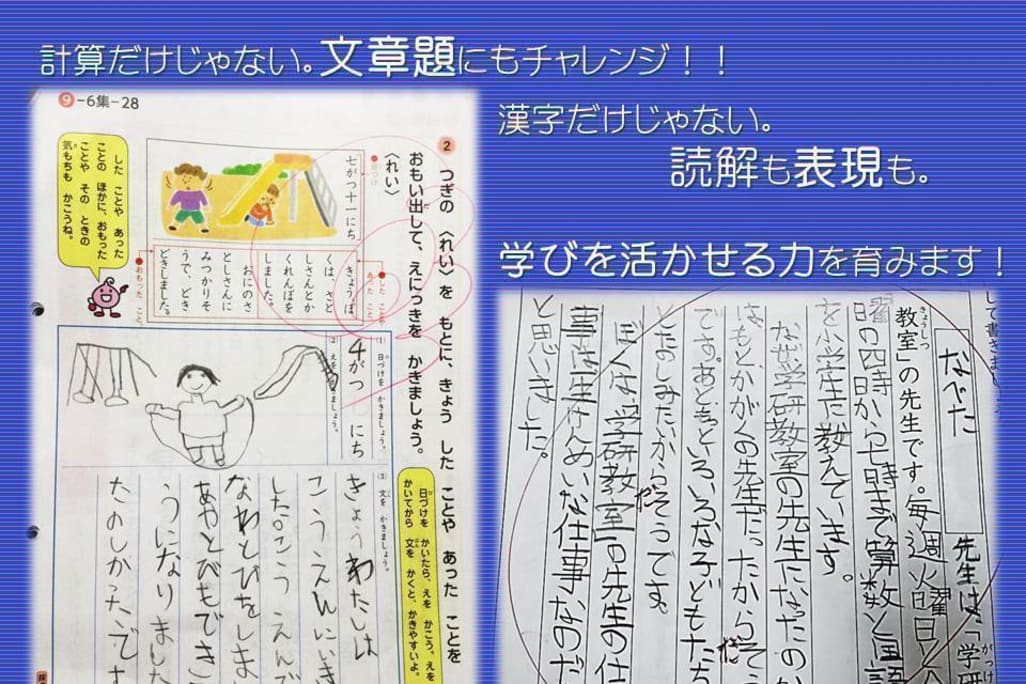 計算だけじゃない。文章題にもチャレンジ！！
漢字だけじゃない。
読解も表現も。
学びを活かせる力を育みます！
9-6集-28
2 つぎの 〈れい〉を もとに、きょう した ことや あった ことを
おもい出して、えにっきを かきましょう。
〈れい〉
七がつ十一にち
きょう、ぼ
くは さと
しさんとか
くれんぼを
しました。
おにのさ
としさんに
みつかりそ
うで、どき
どきしました。
した こと
あった こと
おもった こと
した ことや あった
ことの ほかに、おもった
ことや その ときの
気もちも かこうね。
(1) 日づけを かきましょう。
4がつ にち
(2) えを かきましょう。
(3) 文を かきましょう。
きょうわたしは
こうえんにいき
した。こうえんで
なわとびをしま
あやとびもでき
うになりました
たのしかったです
日づけを かいたら、えを かこう。えを
かいてから 文を かくと、かきやすいよ。
して書きま
なべた
先生は、「学研
教室」の先生です。毎週火曜日と
曜の四時から七時まで算数と国語
を小学生に教えています。
なぜ学研教室の先生になったの
はもとかがくの先生だったからそう
です。あといろいろな子どもたち
とたのしみたいからだそうです。
ぼくは、学研教室の先生の仕
事は生なんめいな仕事なのだ
と思いました。